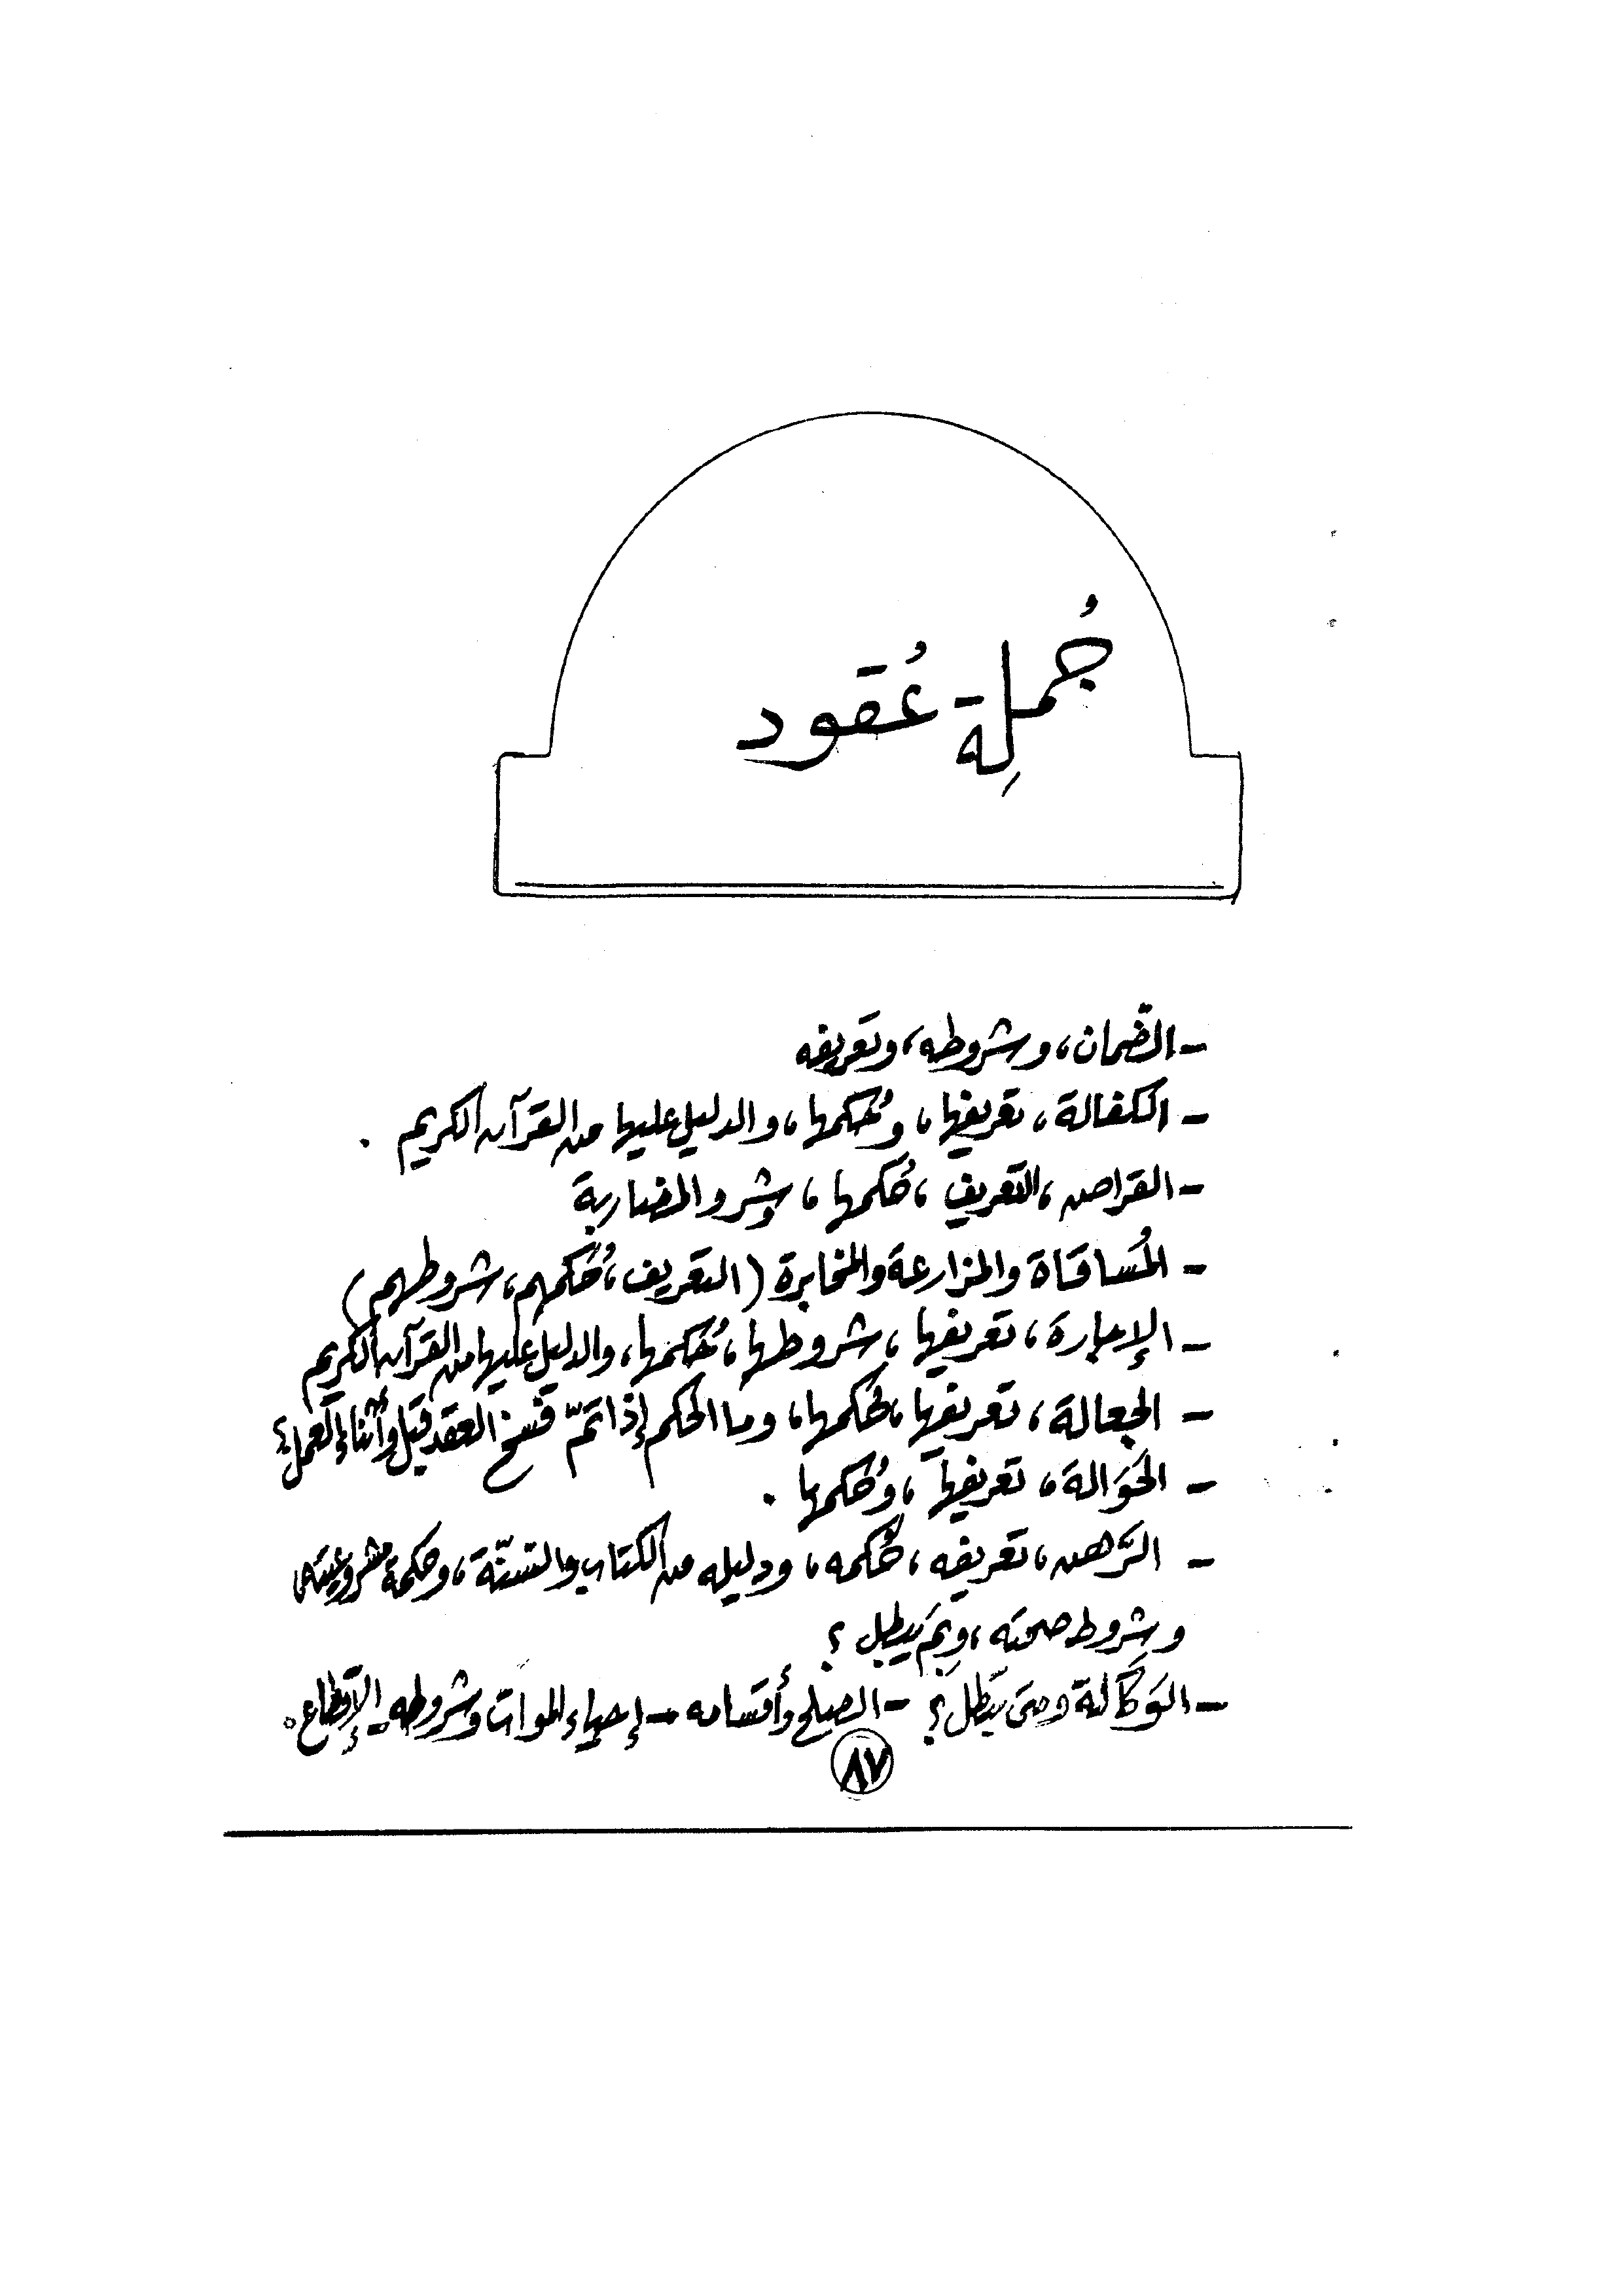 جُملة عُقود
- الضّمان، وشروطه، وتعريفه
- الكفالة، تعريفها، وحُكمها، والدليل عليها من القرآن الكريم.
- القراض، التعريف، حُكمها، وشرو المضاربة
- المُساقاة والمزارعة والمخابرة (التعريف، حُكمهم، شروطهم)
- الإجارة، تعريفها، شروطها، حُكمها، والدليل عليها من القرآن الكريم
- الجعالة، تعريفها، حُكمها، وما الحكم إذا تمّ فسخ العقد قبل وأثناء العمل؟
- الحَوَالة، تعريفها، وحُكمها.
- الرّهن، تعريفه، حُكمه، ودليله من الكتاب والسنّة، وحكمة مشروعيته
وشروط صحته، وبِمَ يبطل؟
- الوَكَالة ومتى تبطل؟ - الصلح وأقسامه - إحياء الموات وشروطه - الإقطاع.
٨٧